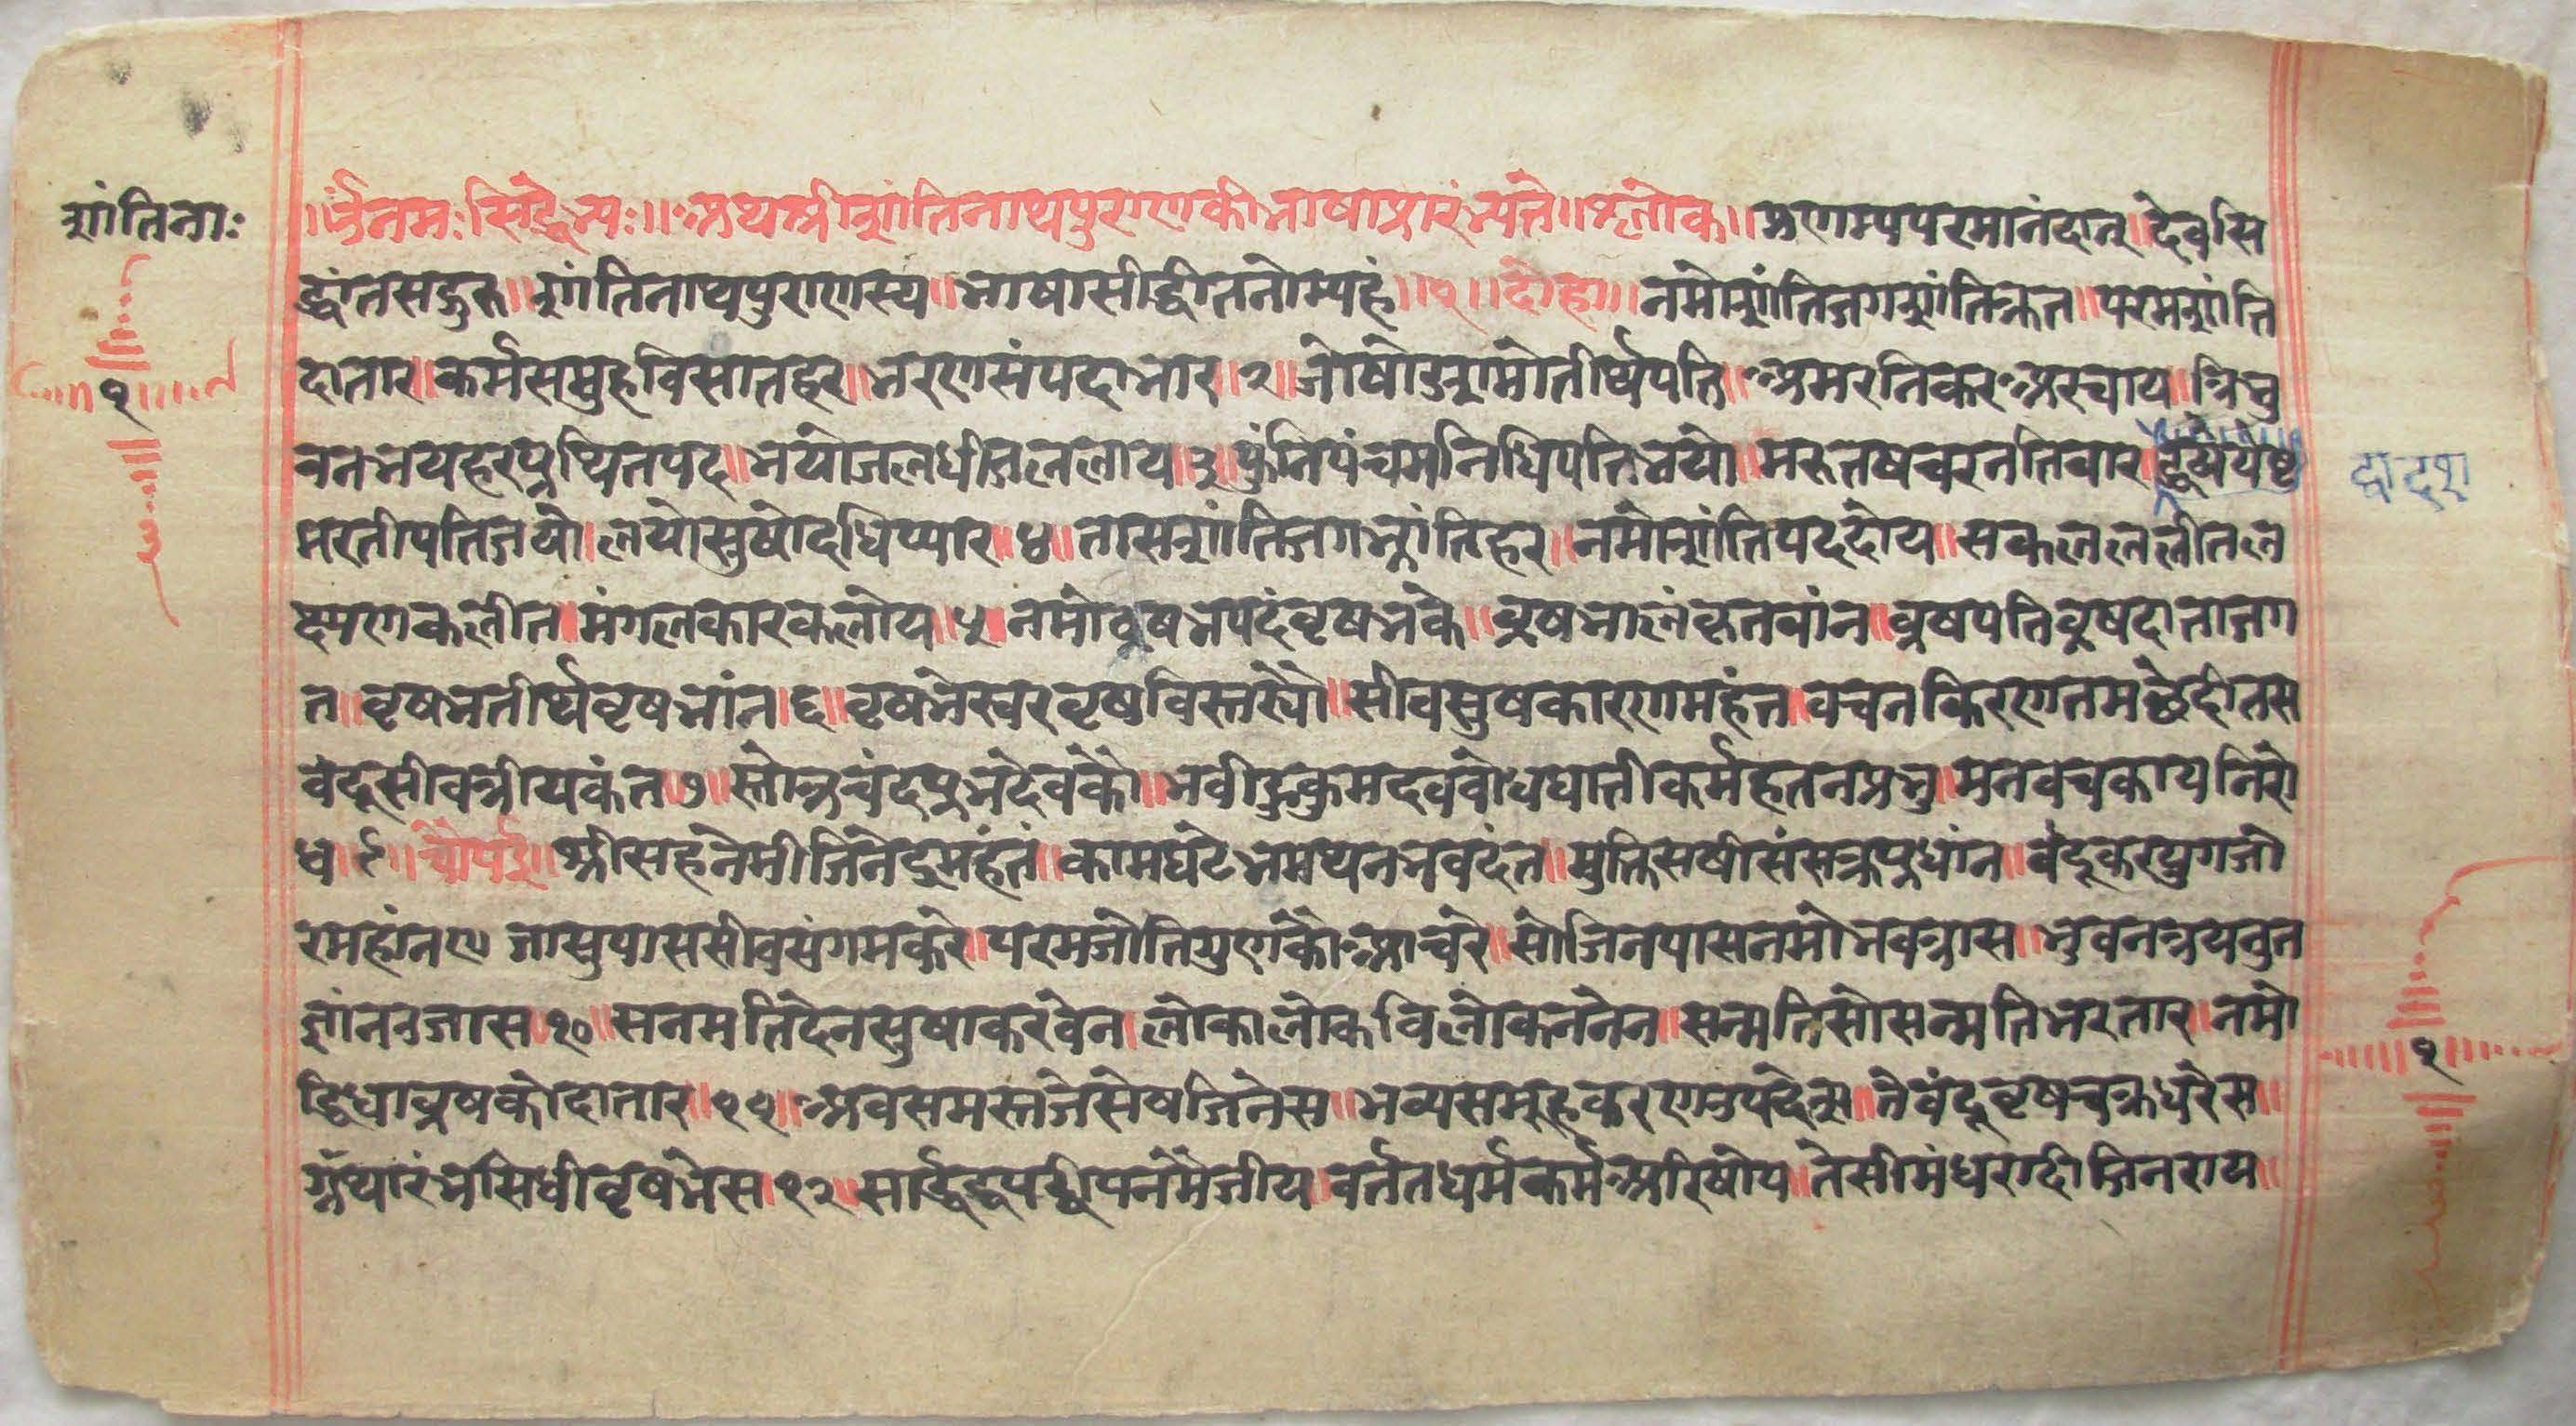 शांतिनाः
१
॥ॐनमःसिद्धेभ्यः॥अथश्रीशांतिनाथपुराणकीभाषाप्रारंभ्यते॥श्लोक॥प्रणम्यपरमानंदान्॥देवसि
द्धांतसद्गुरु॥शांतिनाथपुराणस्य॥भाषासीद्धीतनोम्यहं॥१॥दोहा॥नमोशांतिजगशांतिक्रत॥परमशांति
दातार॥कर्मसमुहविसातहर॥भरणसंपदाभार॥२॥जोषोडशमोतीर्थपति॥अमरनिकरअरचाय॥त्रिभु
वनभयहरप्रथितपद॥भयोजलधी
द्वादश
भरतीपतिजयो॥लयोसुषोदधिप्यार॥४॥तासशांतिजगभ्रांतिहर॥नमोशांतिपददोय॥सकलललीतल
क्ष्यणकलीत॥मंगलकारकलोय॥५॥नमोवृषभपदवृषभके॥वृषभालंकृतवांन॥वृषपतिवृषदाताजग
त॥वृषभतीर्थवृषभांन॥६॥वृषभेस्वरवृषविस्तर्यो॥सीवसुषकारणमहंत॥वचनकिरणतमछेदीतस
वंदूसीवत्रीयकंत॥७॥स्तोत्रचंदप्रभदेवकौ॥भवी कुमदववोधघातीकर्महतनप्रभु॥मनवचकायनिरो
ध॥८॥चौपई॥श्रीसहनेमीजिनेद्रमहंतं॥कामघटेभमथनभवदंत॥मुक्तिसषीसंसक्तप्रधांन॥वंदूकरयुगजो
रमहांन॥९॥जासुपाससीवसंगमकरे॥परमजोतिगुणकोआचरे॥सोजिनपासनमोभवत्रास॥भुवनत्रयनुत
ज्ञांनउजास॥१०॥सनमतिदेनसुषाकरवेन॥लोकालोकविलोकननेन॥सन्मतिसोसन्मतिभरतार॥नमो
द्विधावृषकोदातार॥११॥अवसमस्तजेसेषजिनेस॥भव्यसमूहकरणउपदेश॥तेवंदूवृषचक्रधरेस॥
ग्रंथारंभसिधीवृषभेस॥१२॥सार्द्धद्वयद्वीपनमैजीय॥वर्ततधर्मकर्मअरिषोय॥तेसीमंधरादीजिनराय॥
१